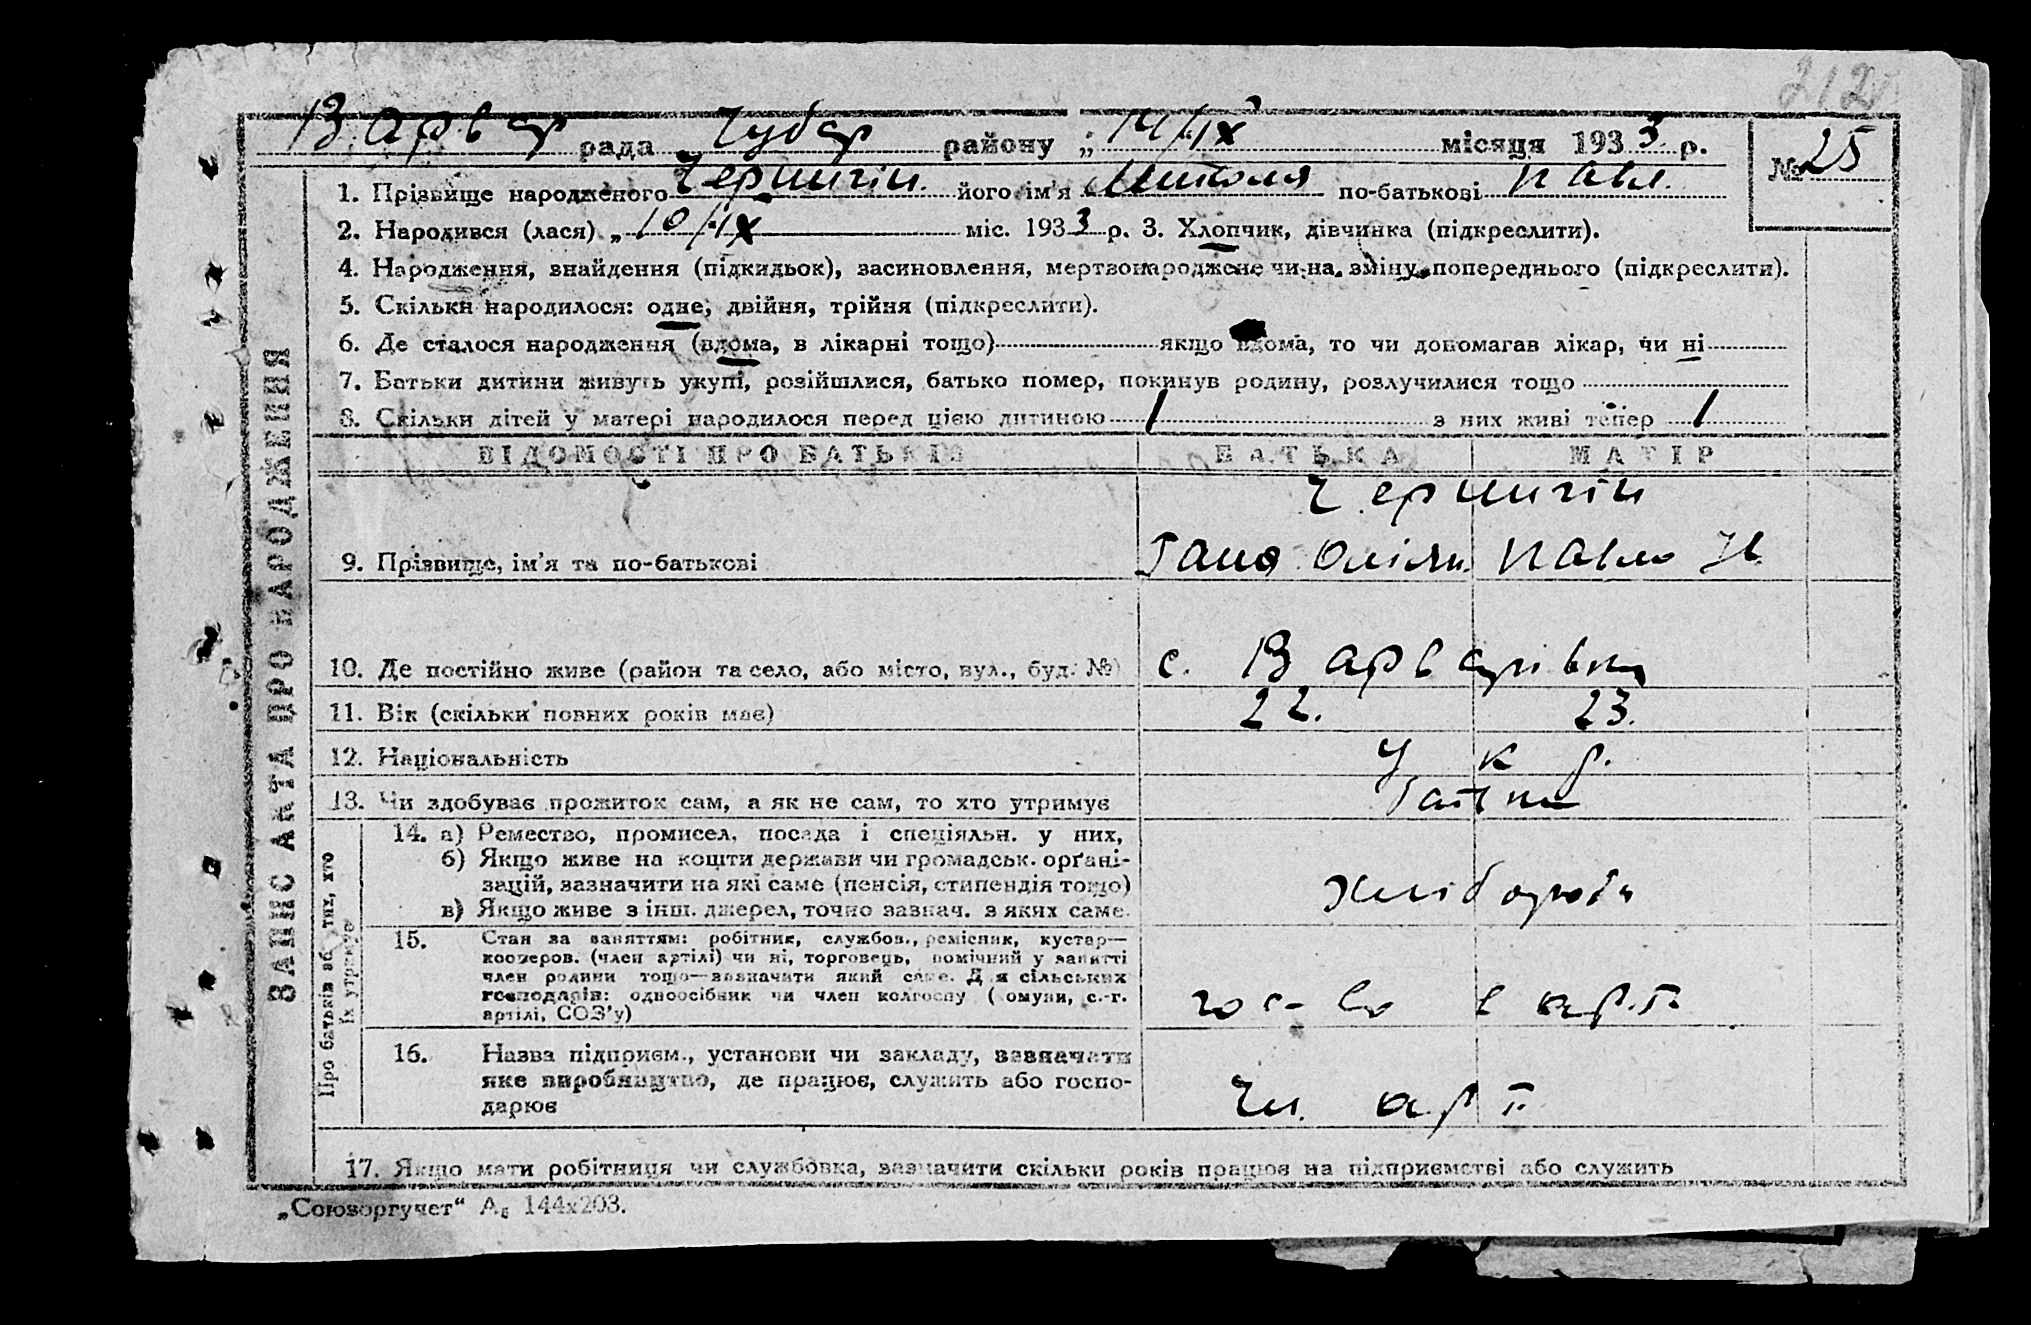 212
Варвар рада Чубар району „ 14/IX місяця 1933 р. № 25
1. Прізвище народженого Чернигін. його ім'я Митоля по-батькові Павл.
2. Народився (лася) „ 10/IX міс. 1933 р. 3. Хлопчик, дівчинка (підкреслити).
4. Народження, знайдення (підкидьок), засиновлення, мертвонароджене чи на зміну попереднього (підкреслити).
5. Скільки народилося: одне, двійня, трійня (підкреслити).
6. Де сталося народження (вдома, в лікарні тощо) якщо вдома, то чи допомагав лікар, чи ні
7. Батьки дитини живуть укупі, розійшлися, батько помер, покинув родину, розлучилися тощо
8. Скільки дітей у матері народилося перед цією дитиною 1 з них живі тепер 1
ВІДОМОСТІ ПРО БАТЬКІВ БАТЬКА МАТІР
Чернигін
9. Прізвище, ім'я та по-батькові Ганя Павло
10. Де постійно живе (район та село, або місто, вул., буд. №) с. Варварівки
11. Вік (скільки повних років має) 22. 23.
12. Національність Укр.
13. Чи здобуває прожиток сам, а як не сам, то хто утримує
14. а) Ремество, промисел, посада і спеціяльн. у них,
б) Якщо живе на кошти держави чи громадськ. орґані-
зацій, зазначити на які саме (пенсія, стипендія тощо)
в) Якщо живе з інш. джерел, точно зазнач. з яких саме.
Хлібороби
15. Стан за заняттям: робітник, службов., ремісник, кустар—
кооперов. (член артілі) чи ні, торговець, помічний у занятті
член родини тощо—зазначити який саме. Для сільських
господарів: одноосібник чи член колгоспу (комуни, с.-г.
артілі, СОЗ'у)
гос-во в арт.
16. Назва підприєм., установи чи закладу, зазначати
яке виробництво, де працює, служить або госпо-
дарює
Чл. арт.
17. Якщо мати робітниця чи службовка, зазначити скільки років працює на підприємстві або служить
ЗАПИС АКТА ПРО НАРОДЖЕННЯ
Про батьків або тих, хто
їх утримує
„Союзоргучет“ А₆ 144х203.